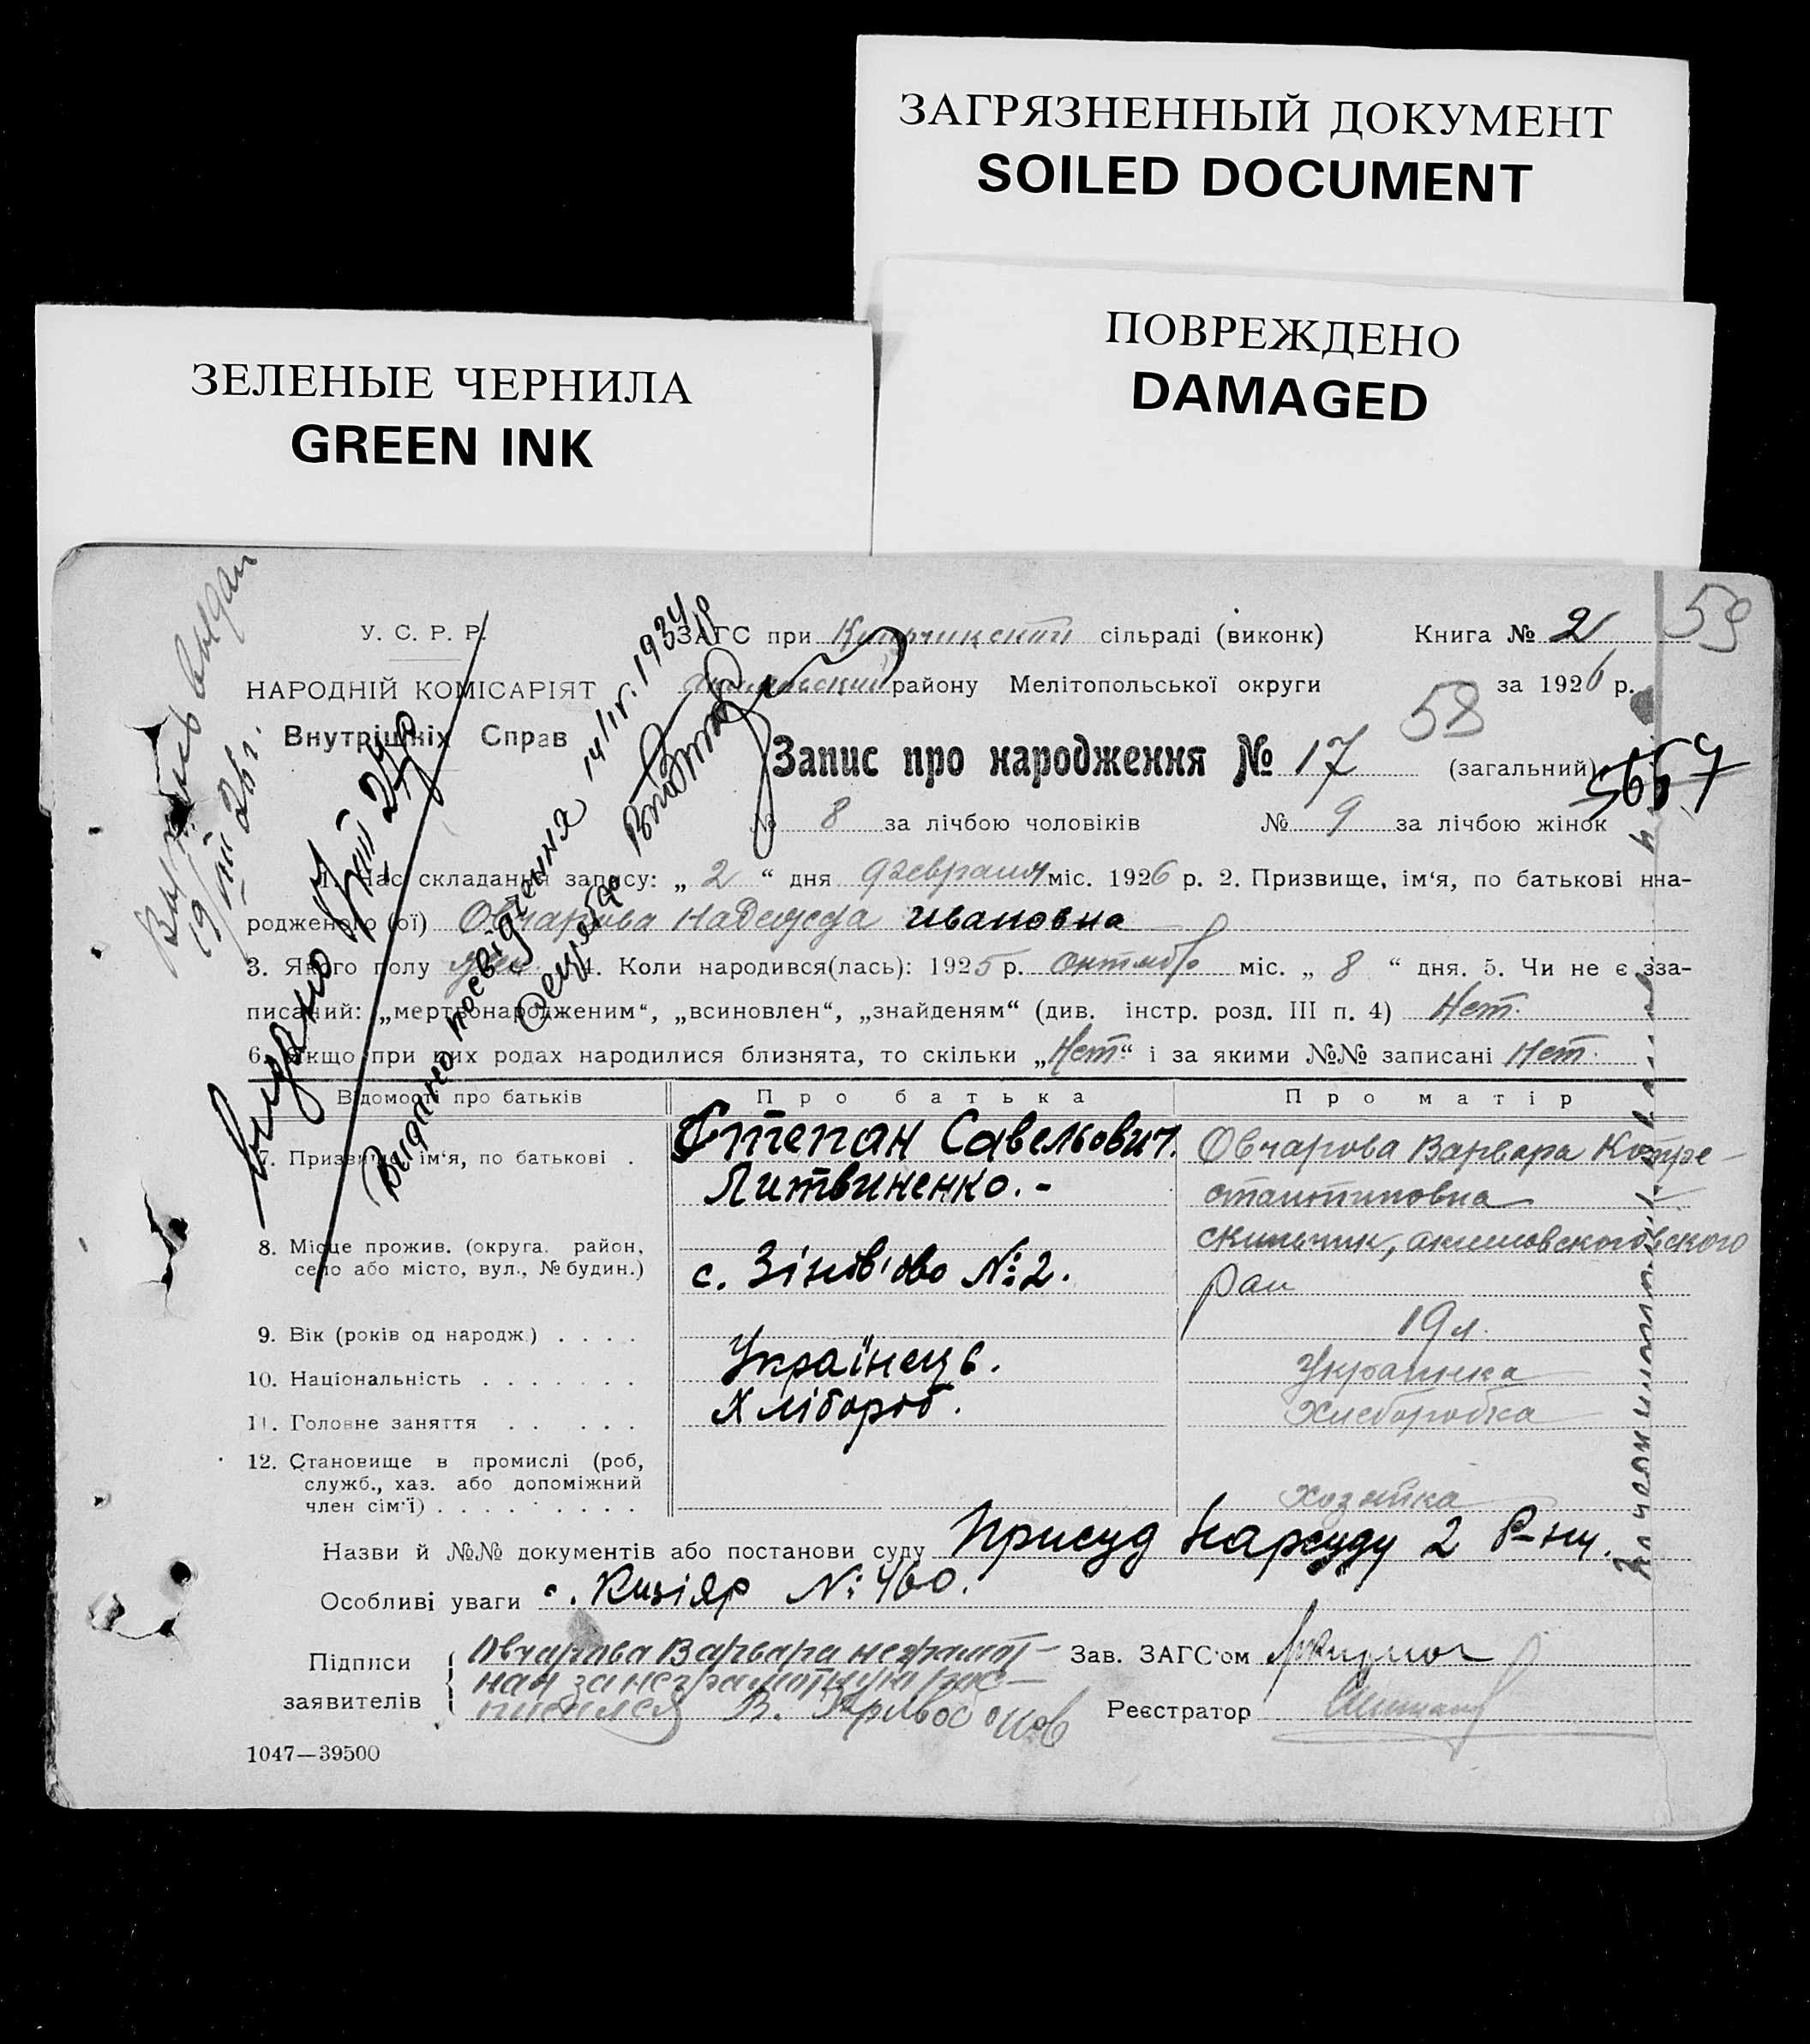 ЗАГРЯЗНЕННЫЙ ДОКУМЕНТ
SOILED DOCUMENT
ПОВРЕЖДЕНО
DAMAGED
ЗЕЛЕНЫЕ ЧЕРНИЛА
GREEN INK
59
У. С. Р. Р.
НАРОДНІЙ КОМІСАРІЯТ
Внутрішніх Справ
ЗАГС при сільраді (виконк) Книга № 2
району Мелітопольської округи за 1926 р.
58
Запис про народження № 17 (загальний)
№ 8 за лічбою чоловіків № 9 за лічбою жінок
1. Час складання запису: „ 2 “ дня февраля міс. 1926 р. 2. Призвище, ім‘я, по батькові нна-
родженого (ої) Овчарова Надежда Ивановна
3. Якого полу жен. 4. Коли народився(лась): 1925 р. октября міс. „ 8 “ дня. 5. Чи не є зза-
писаний: „мертвонародженим“, „всиновлен“, „знайденям“ (див. інстр. розд. III п. 4) Нет.
6. Якщо при цих родах народилися близнята, то скільки „Нет“ і за якими №№ записані Нет.
Відомості про батьків Про батька Про матір
7. Призвище, ім‘я, по батькові .
Степан Савельович
Литвиненко. -
Овчарова Варвара
8. Місце прожив. (округа. район,
село або місто, вул., № будин.)
с. Зінов'єво № 2.
9. Вік (років од народж.) . . . . 19 л.
10. Національність . . . . . . . Українець. Украинка
11. Головне заняття . . . . . Хлібороб. Хлеборобка
12. Становище в промислі (роб,
служб., хаз. або допоміжний
член сім‘ї) . . . . . . . . . хозяйка
Назви й №№ документів або постанови суду Присуд Нарсуду 2 Р-ну.
Особливі уваги с. Кизіяр № 460.
Підписи
заявителів
Овчарова Варвара неграмот-
ная за неграмотную рас-
писался В.
Зав. ЗАГС‘ом
Реєстратор
1047—39500
Выпись выдан
19/VIII 26 г.
Видано
Видано посвідчення 14/IV. 1934 р